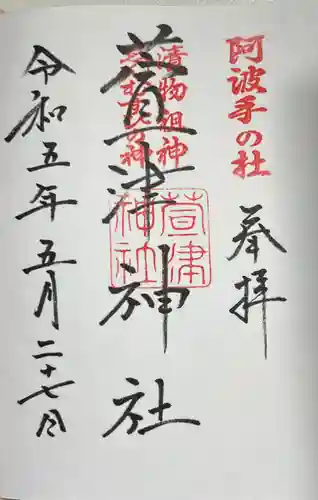 阿波手の杜
奉拝
漬物祖神
萱津神社
萱津神社
令和五年五月二十七日